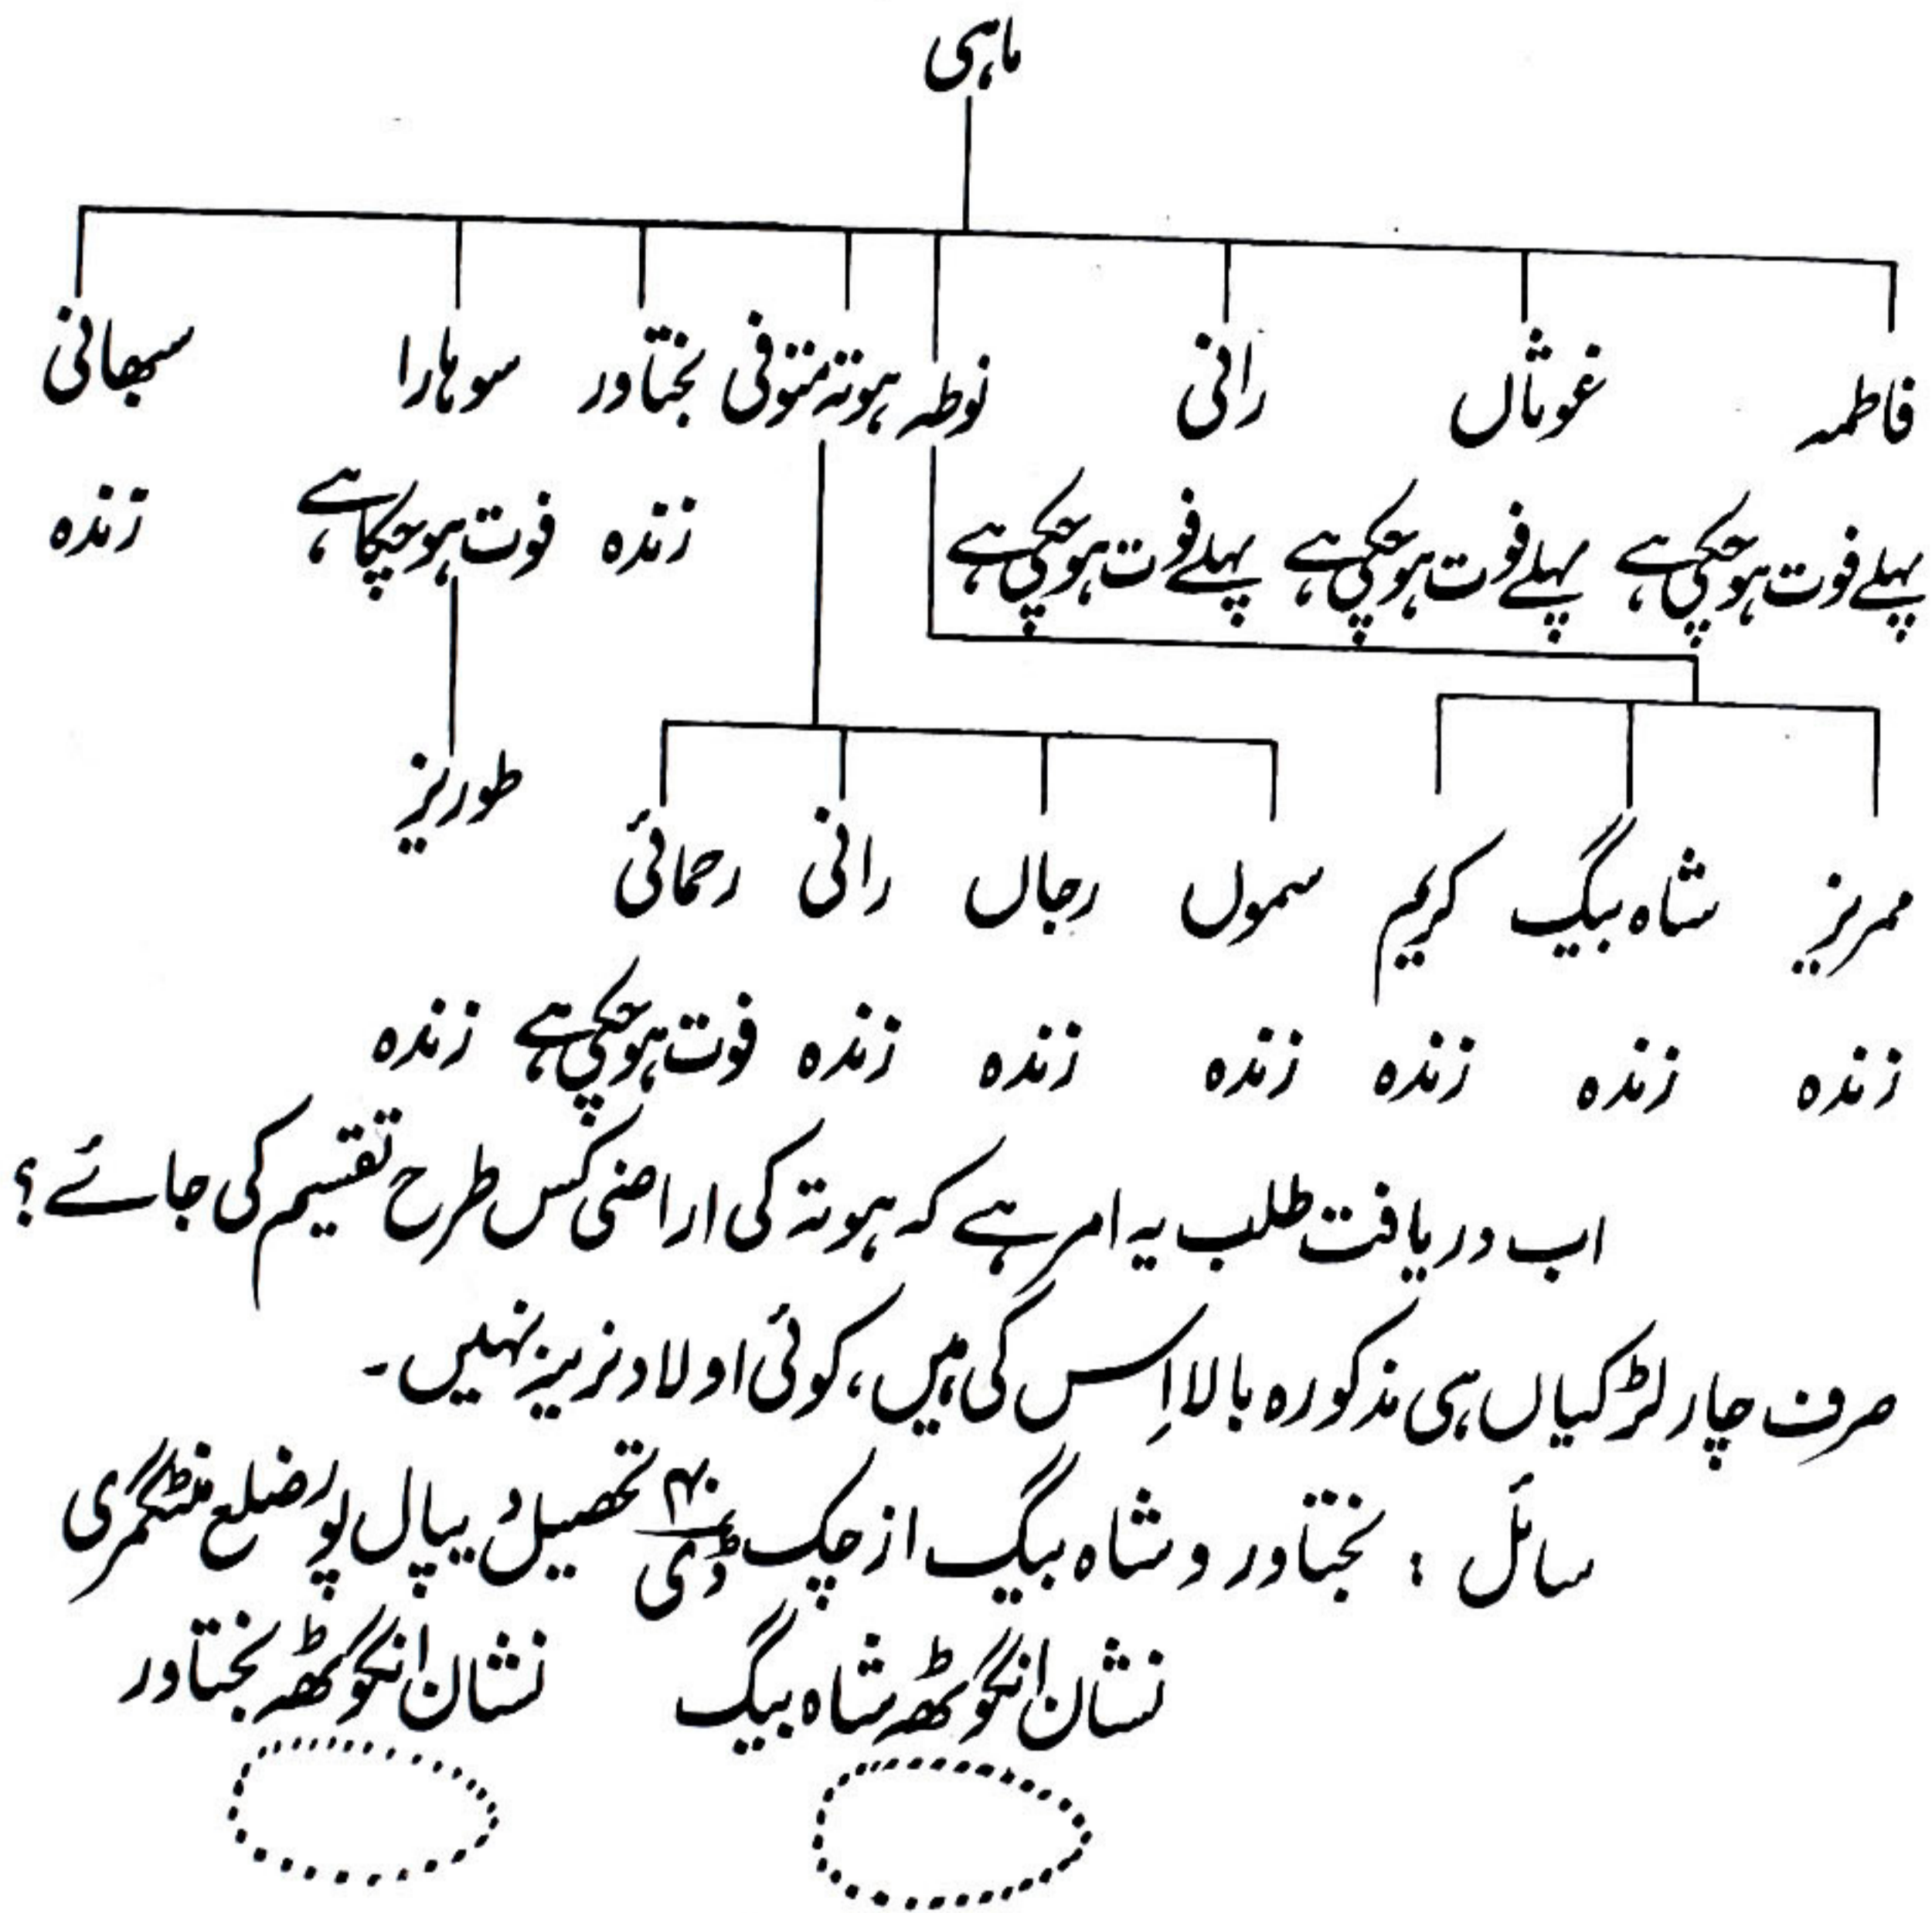 ماہی
فاطمہ غوثاں رانی نوطہ ہوتہ متوفی بختاور سوہارا سبھانی
پہلے فوت ہوچکی ہے پہلے فوت ہوچکی ہے پہلے فوت ہوچکی ہے زندہ فوت ہوچکا ہے زندہ
طوریز
ممریز شاہ بیگ کریم سموں رجاں رانی رحمائی
زندہ زندہ زندہ زندہ زندہ زندہ فوت ہوچکی ہے زندہ
اب دریافت طلب یہ امر ہے کہ ہوتہ کی اراضی کس طرح تقسیم کی جائے؟
صرف چار لڑکیاں ہی مذکورہ بالا اِس کی ہیں، کوئی اولاد نرینہ نہیں۔
سائل: بختاور و شاہ بیگ از چک ۴۰/ڈی تحصیل دیپال پور ضلع منٹگمری
نشان انگوٹھہ شاہ بیگ نشان انگوٹھہ بختاور